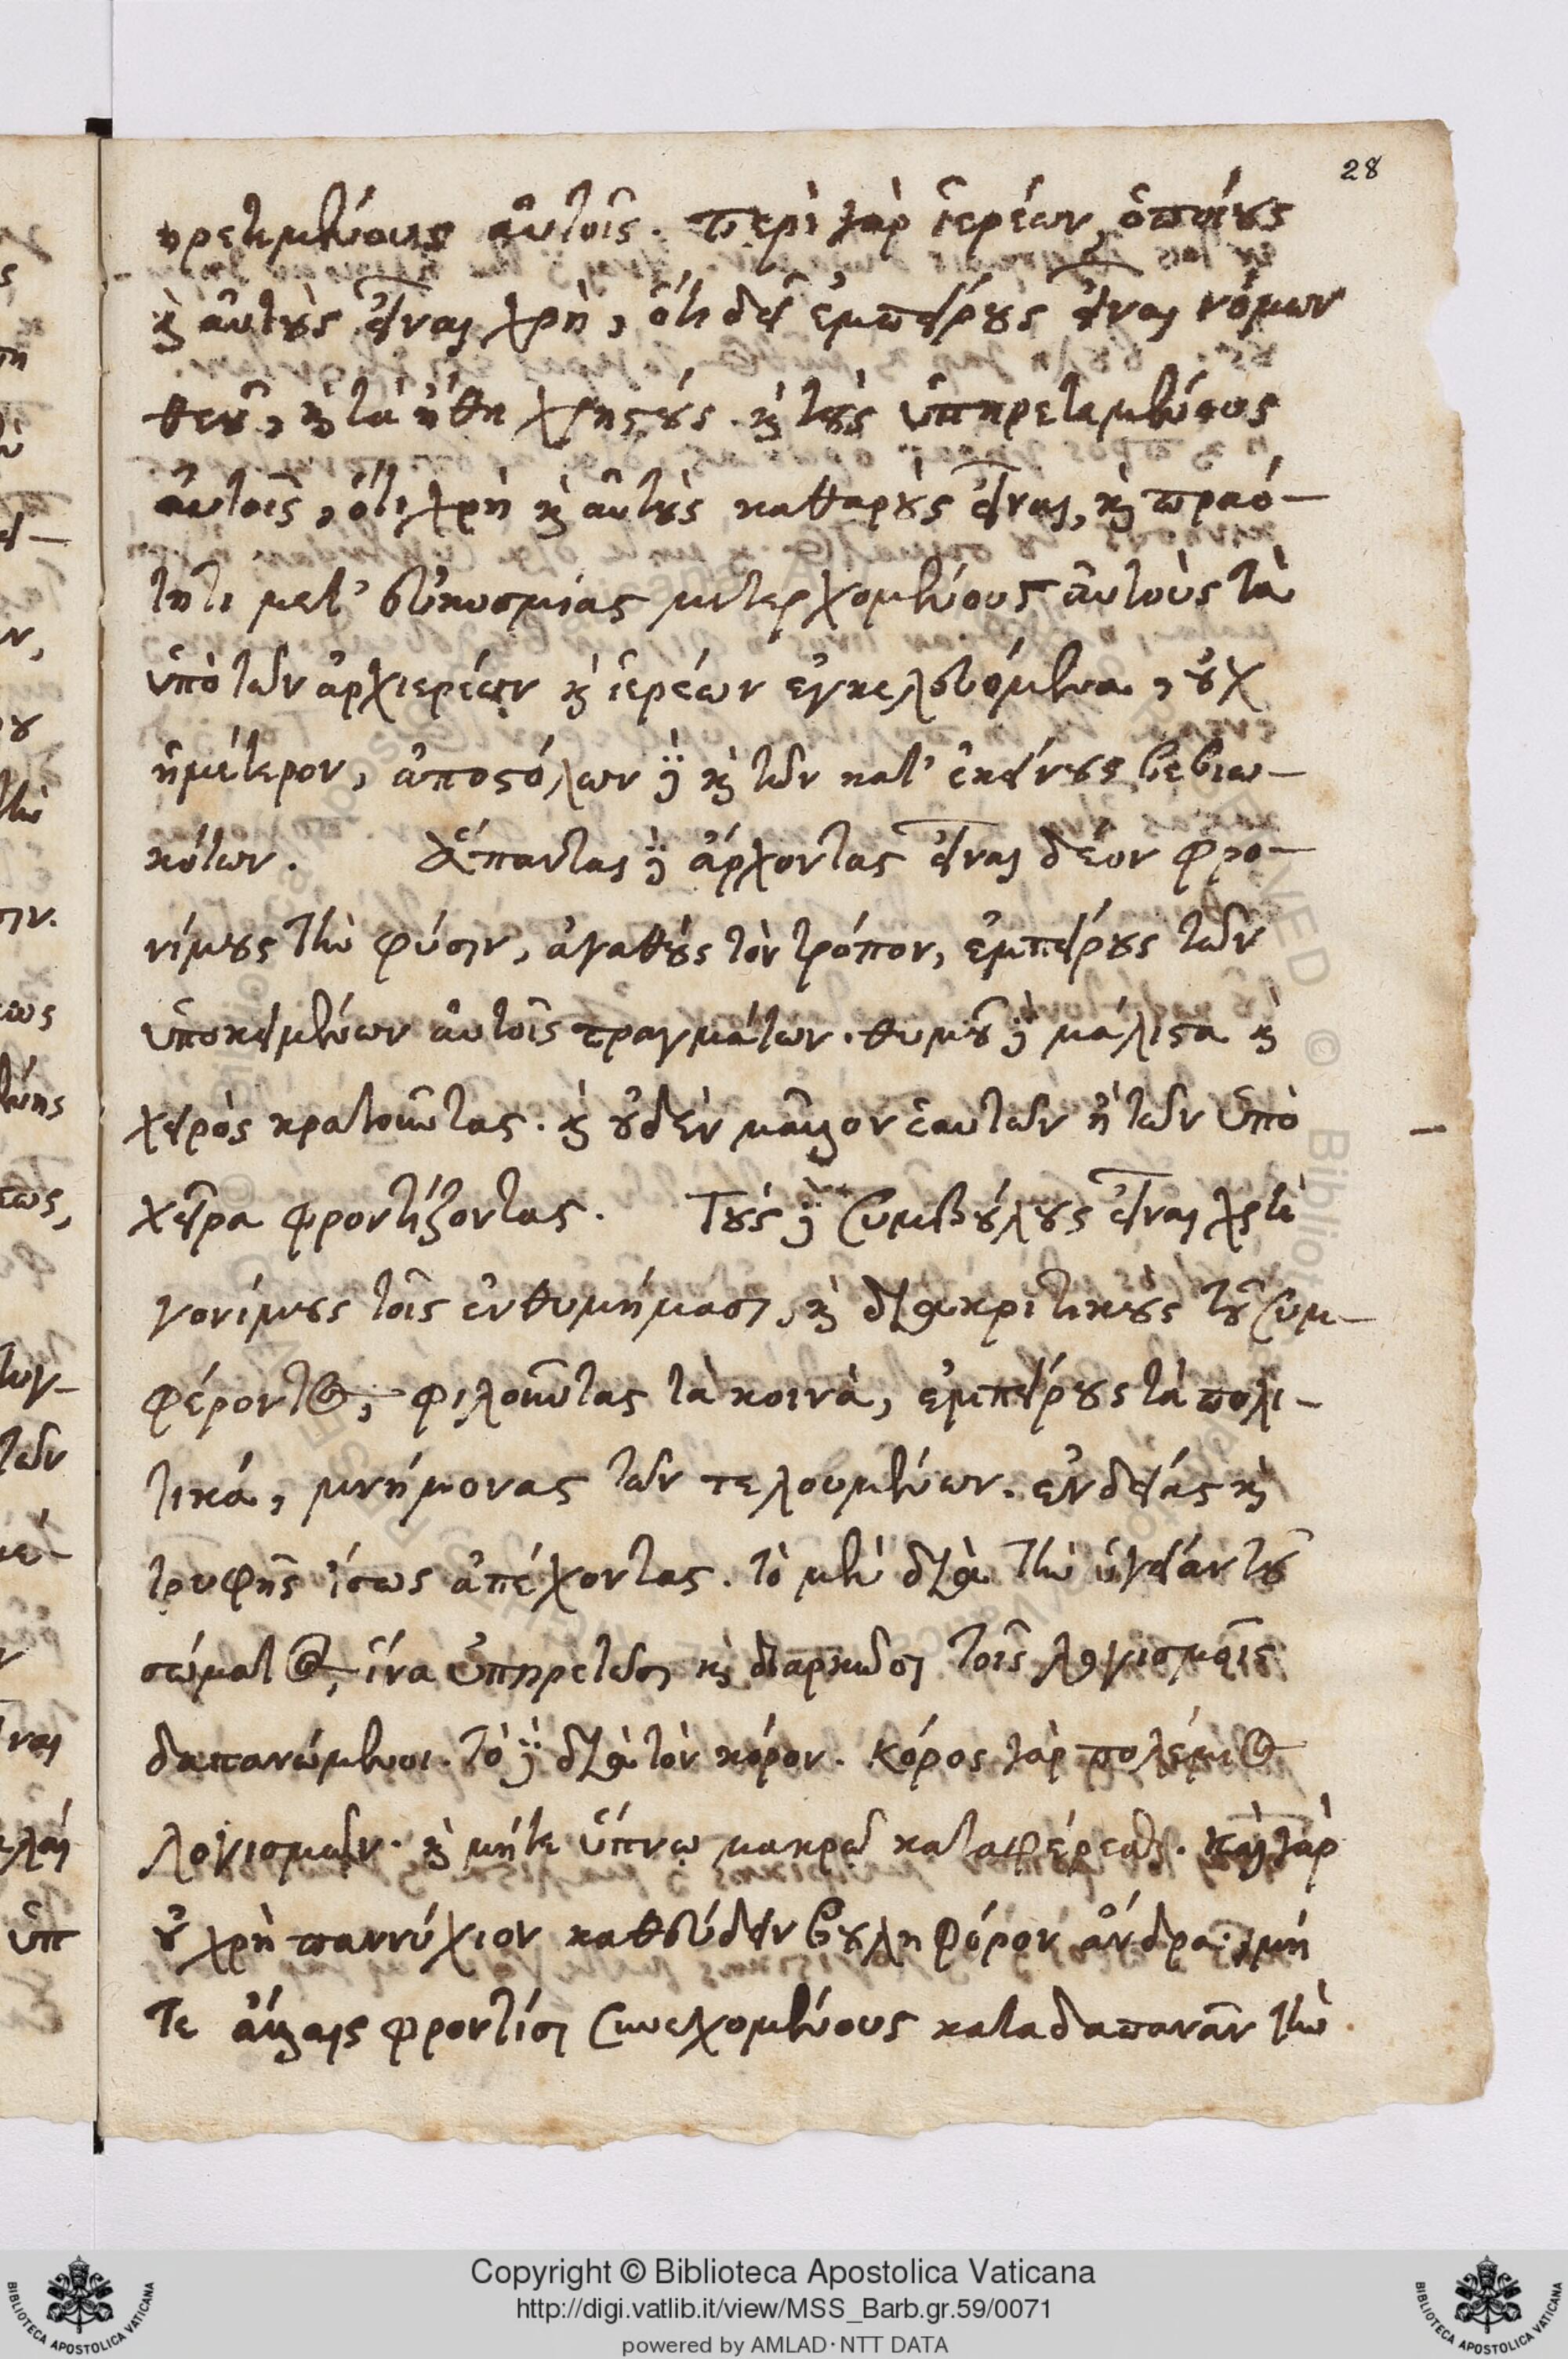 28
ηρετημένους αὐτοῖς. περὶ γὰρ ἱερέων, ὁποίους
καὶ αὐτοὺς εἶναι χρὴ, ὅτι δεῖ ἐμπείρους εἶναι νόμων
θεοῦ, καὶ τὰ ἤθη χρηστούς. καὶ τοὺς ὑπηρετεμένους
αὐτοῖς, ὅτι χρὴ καὶ αὐτοὺς καθαροὺς εἶναι, καὶ πραό-
τητι μετ' εὐκοσμίας μετερχομένους αὐτοὺς τὰ
ὑπὸ τῶν ἀρχιερέων καὶ ἱερέων ἐγκελευόμενα, οὐχ
ἡμέτερον, ἀποστόλων δὲ καὶ τῶν κατ' ἐκείνους βεβιω-
κότων. Ἅπαντας δὲ ἄρχοντας εἶναι δέον φρο-
νίμους τὴν φύσιν, ἀγαθοὺς τὸν τρόπον, ἐμπείρους τῶν
ὑποκειμένων αὐτοῖς πραγμάτων. θυμοῦ δὲ μάλιστα καὶ
χειρὸς κρατοῦντας. καὶ οὐδὲν μᾶλλον ἑαυτῶν ἢ τῶν ὑπὸ
χεῖρα φροντίζοντας. Τοὺς δὲ συμβούλους εἶναι χρὴ
γονίμους τοῖς ἐνθυμήμασι, καὶ διακριτικοὺς τοῦ συμ-
φέροντος, φιλοῦντας τὰ κοινὰ, ἐμπείρους τὰ πολι-
τικά, μνήμονας τῶν τελουμένων. ἐνδείας καὶ
τρυφῆς ἴσως ἀπέχοντας. τὸ μὲν διὰ τὴν ὑγείαν τοῦ
σώματος, ἵνα ὑπηρετῶσι καὶ διαρκῶσι τοῖς λογισμοῖς
δαπανώμενοι. τὸ δὲ διὰ τὸν κόρον. κόρος γὰρ πολέμιος
λογισμῶν. καὶ μήτε ὕπνῳ μακρῷ καταφέρεσθαι. καὶ γὰρ
οὐ χρὴ παννύχιον καθεύδειν βουληφόρον ἄνδρα. μή
τε ἄλλαις φροντίσι συνεχομένους καταδαπανᾶν τὴν
Copyright © Biblioteca Apostolica Vaticana
http://digi.vatlib.it/view/MSS_Barb.gr.59/0071
powered by AMLAD·NTT DATA
BIBLIOTECA APOSTOLICA VATICANA
BIBLIOTECA APOSTOLICA VATICANA